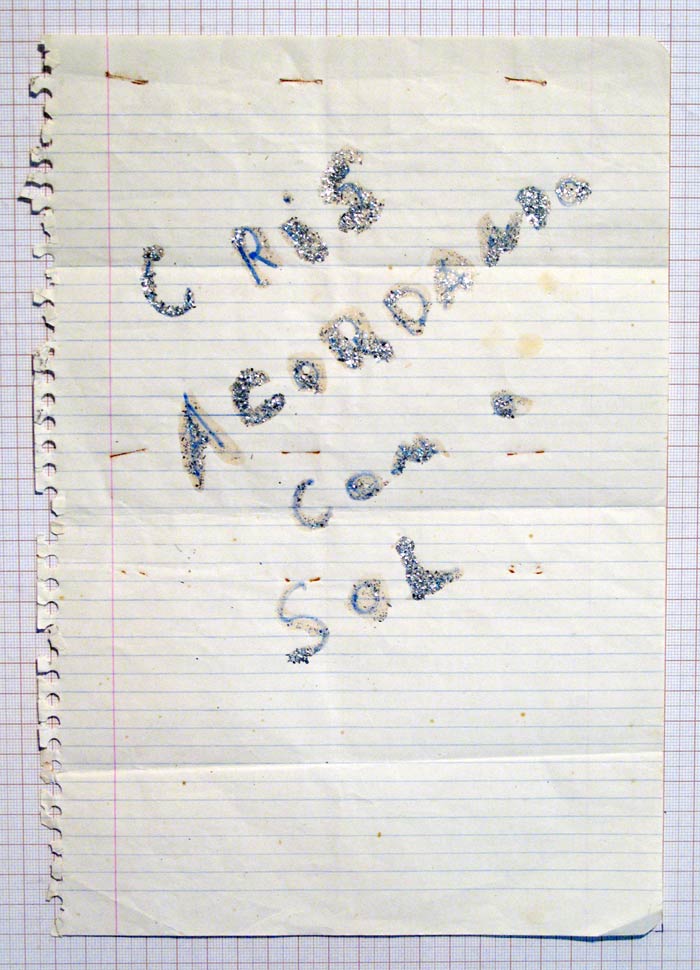 CRiS
ACORDANDO
COM O
SOL